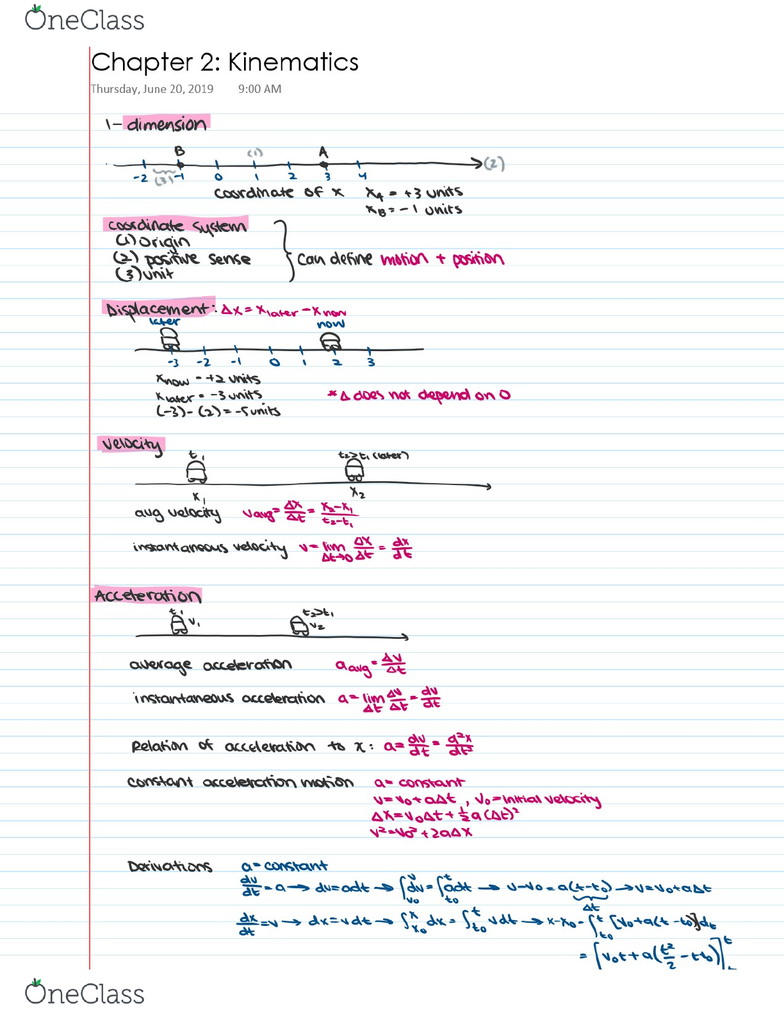 OneClass
Chapter 2: Kinematics
Thursday, June 20, 2019 9:00 AM
1-dimension
B (1) A
-2 (3) -1 0 1 2 3 4 (2)
coordinate of x x_A = +3 units
x_B = -1 units
coordinate system
(1) origin
(2) positive sense
(3) unit
can define motion + position
Displacement: Δx = x_later - x_now
later now
-3 -2 -1 0 1 2 3
x_now = +2 units
x_later = -3 units
(-3) - (2) = -5 units
* Δ does not depend on 0
velocity
t₁ t₂>t₁ (later)
x₁ x₂
avg velocity v_avg = Δx/Δt = (x₂-x₁)/(t₂-t₁)
instantaneous velocity v = lim Δt→0 Δx/Δt = dx/dt
Acceleration
t₁ v₁ t₂>t₁ v₂
average acceleration a_avg = Δv/Δt
instantaneous acceleration a = lim Δt Δv/Δt = dv/dt
Relation of acceleration to x: a = dv/dt = d²x/dt²
constant acceleration motion a = constant
v = v₀ + aΔt, v₀ = initial velocity
Δx = v₀Δt + ½a(Δt)²
v² = v₀² + 2aΔx
Derivations a = constant
dv/dt = a → dv = adt → ∫_v₀^v dv = ∫_t₀^t adt → v-v₀ = a(t-t₀) → v = v₀ + aΔt
Δt
dx/dt = v → dx = vdt → ∫_x₀^x dx = ∫_t₀^t vdt → x-x₀ = ∫_t₀^t [v₀ + a(t-t₀)]dt
= [v₀t + a(t²/2 - tt₀)]^t
OneClass